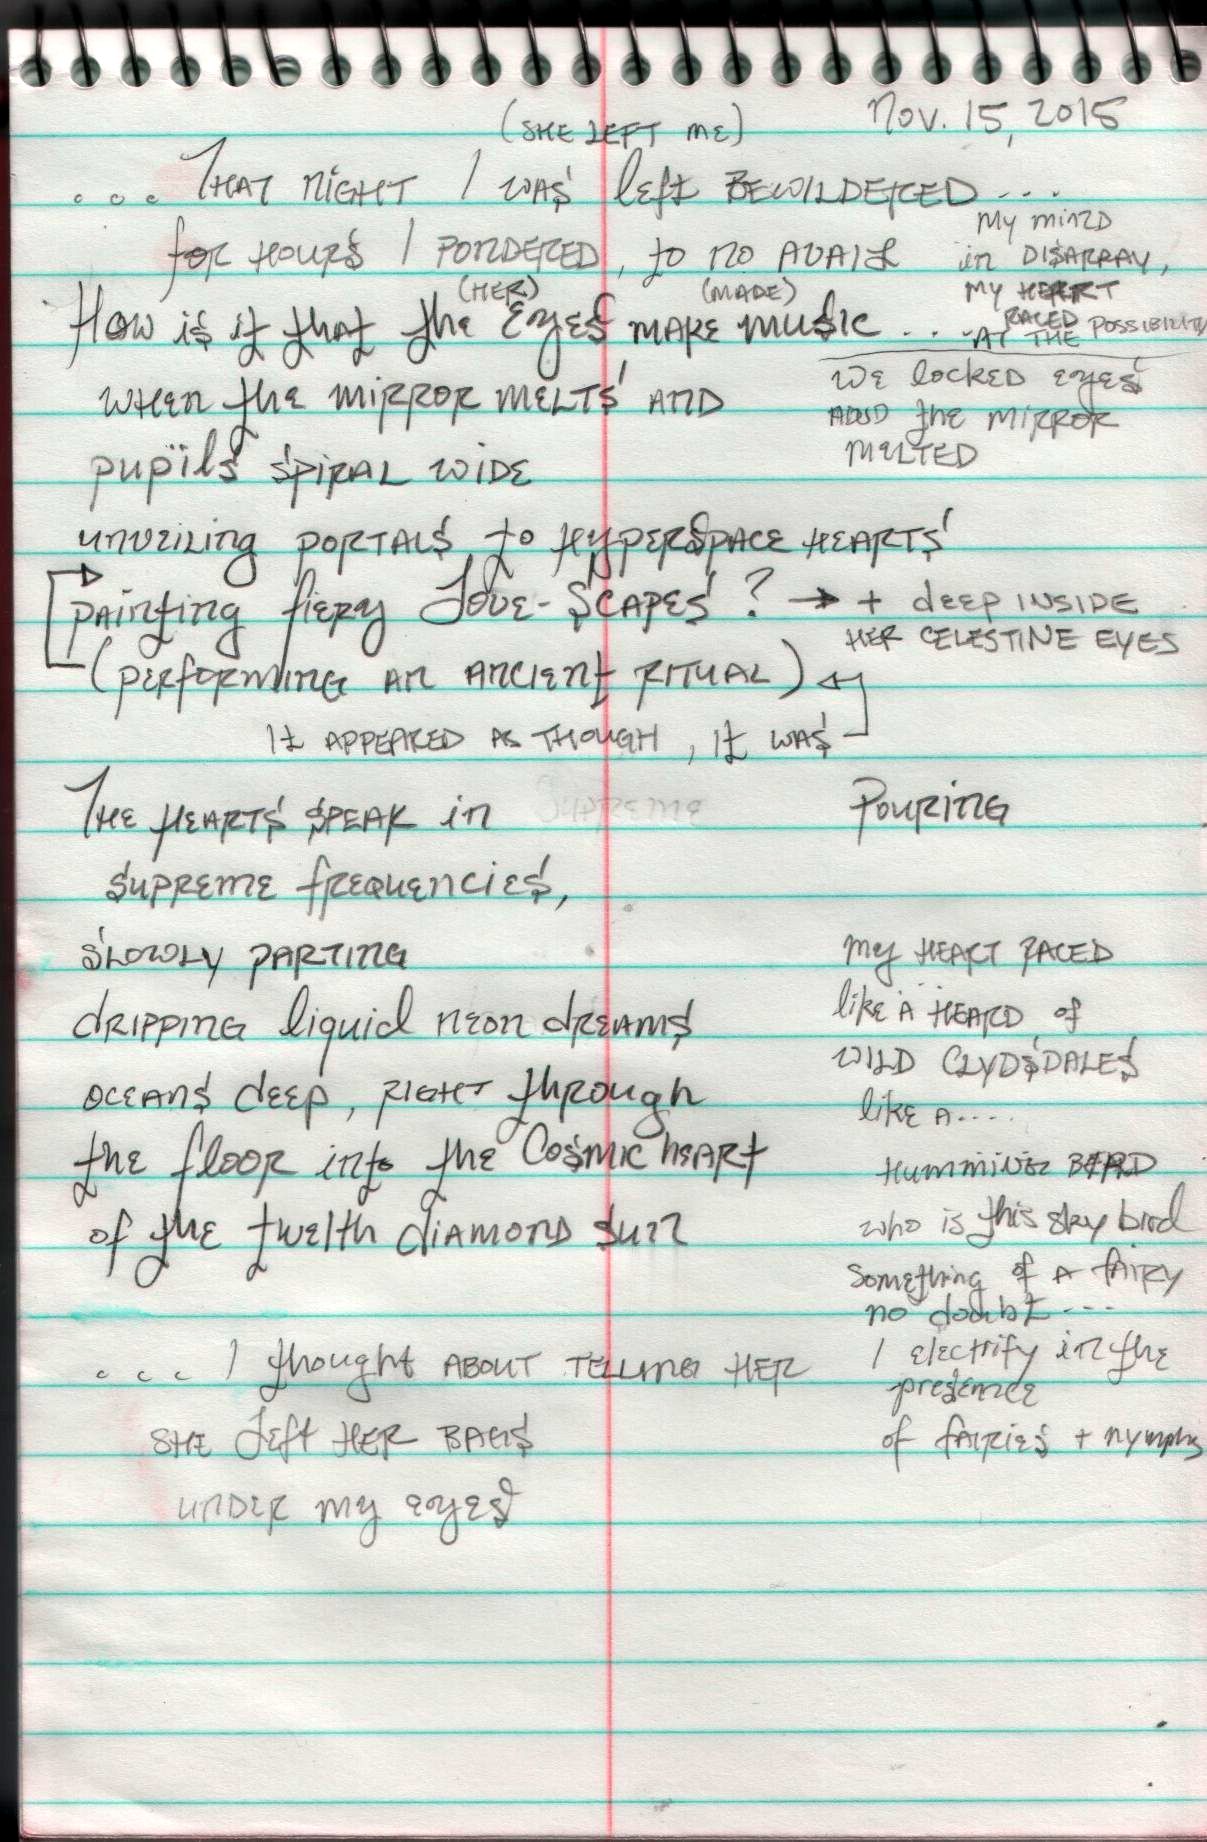 Nov. 15, 2015
(SHE LEFT ME)
... THAT NIGHT I WAS left BEWILDERED ...
for HOURS I PONDERED, to NO AVAIL
MY MIND
in DISARRAY,
MY HEART
RACED
AT THE POSSIBILITY
(HER) (MADE)
HOW is it that the EYES MAKE MUSIC ...
WHEN the MIRROR MELTS AND
pupils SPIRAL WIDE
we locked EYES
AND the MIRROR
MELTED
unveiling PORTALS to HYPERSPACE HEARTS
painting fiery LOVE-SCAPES? → + deep INSIDE
HER CELESTINE EYES
(PERFORMING AN ANCIENT RITUAL)
It APPEARED AS THOUGH, It WAS
THE HEARTS SPEAK in SUPREME
SUPREME frequencies,
SLOWLY PARTING
dRIPPING liquid NEON dREAMS
OCEANS deep, RIGHT through
the floor into the COSMIC HEART
of the twelth diAMOND SUN
... I thought ABOUT TELLING HER
SHE Left HER BAGS
UNDER MY EYES
POURING
MY HEART RACED
like A HEARD of
WILD CLYDSDALES
like A....
HUMMING BIRD
who is this sky bird
Something of A fAIRY
no doubt ...
I electrify in the
presence
of fAIRIES + nymphs